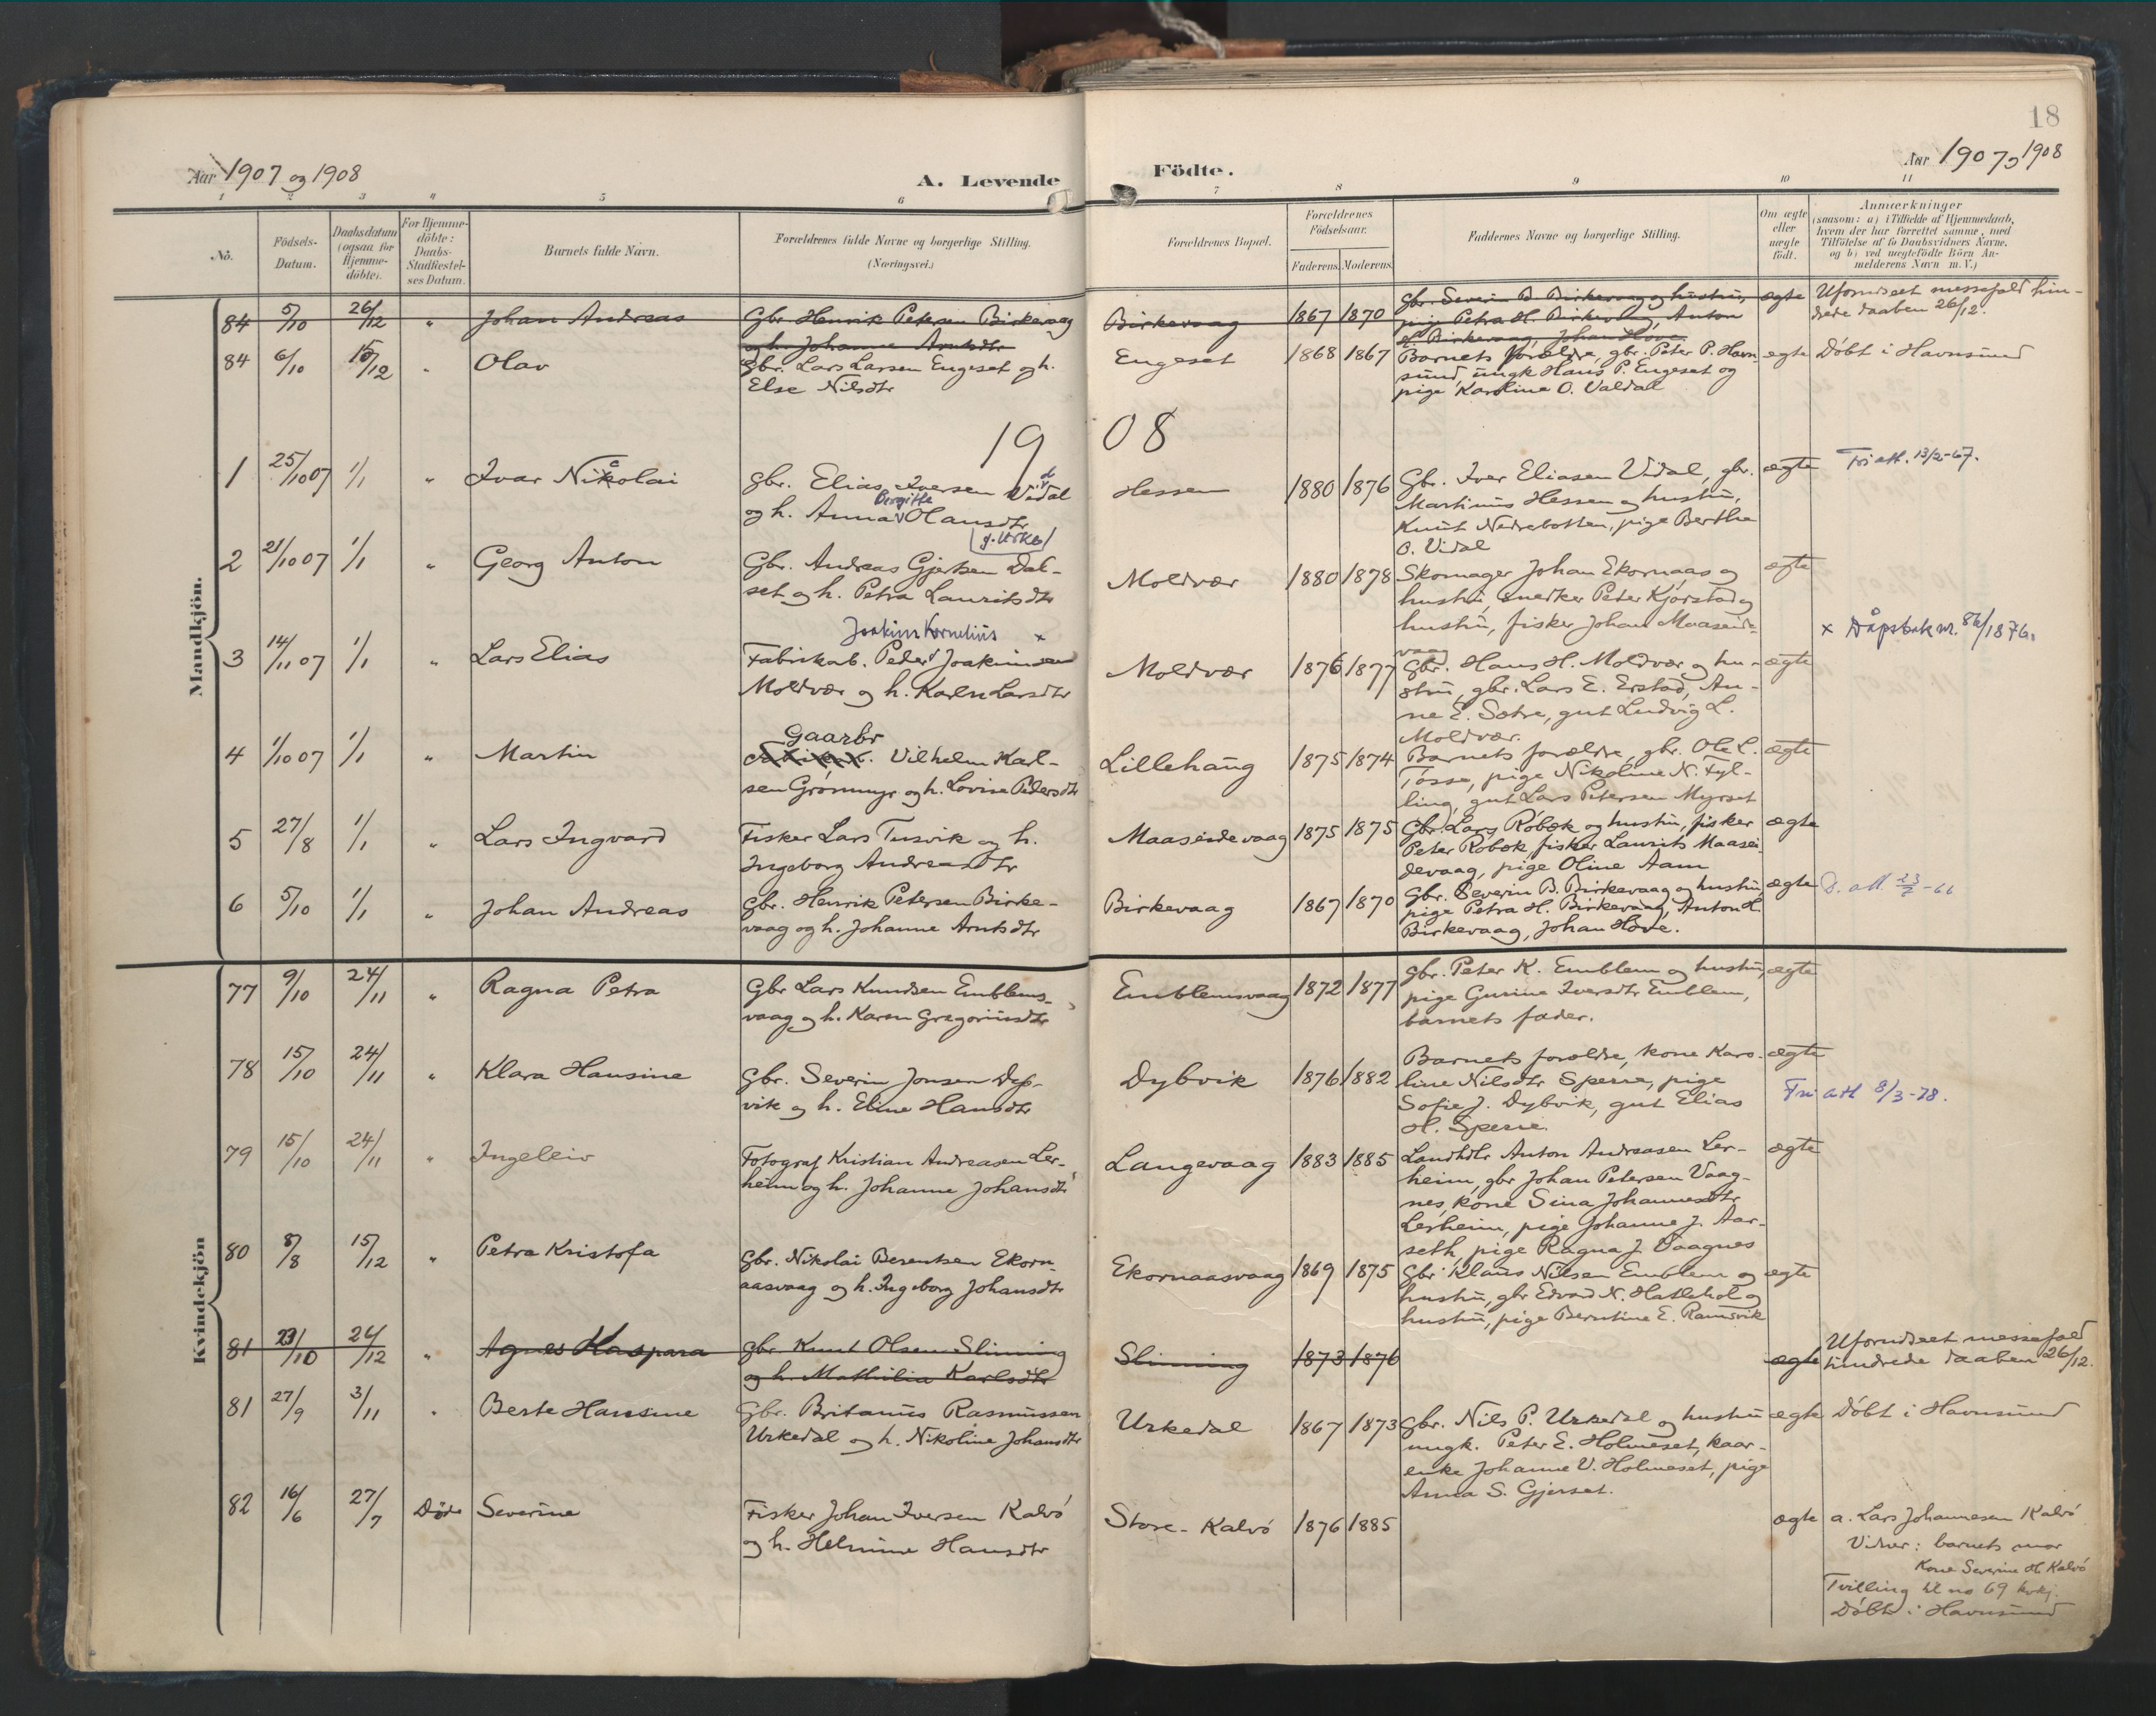 18
Aar 1907 og 1908
A. Levende
Födte.
Aar 1907 og 1908
1 2 3 4 5 6 7 8 9 10 11
No.
Födsels-
Datum.
Daabsdatum
(ogsaa for
Hjemme-
döbte).
For Hjemme-
döbte:
Daabs-
Stadfæstel-
ses Datum.
Barnets fulde Navn.
Forældrenes fulde Navne og borgerlige Stilling.
(Næringsvei.)
Forældrenes Bopæl.
Forældrenes
Födselsaar.
Faderens. Moderens.
Faddernes Navne og borgerlige Stilling.
Om ægte
eller
uægte
födt.
Anmærkninger
(saasom: a) i Tilfælde af Hjemmedaab,
hvem der har forrettet samme, med
Tilföielse af to Daabsvidners Navne,
og b) ved uægtefödte Börn An-
melderens Navn m. V.)
Mandkjön.
84 5/10 26/12 " Johan Andreas
Gbr. Henrik Petersen Birkevaag
og h. Johanne Arntsdtr
Birkevaag 1867 1870
Gbr. Severin B. Birkevaag og hustru,
pige Petra H. Birkevaag, Anton
H. Birkevaag, Johan Hove.
ægte
Uforudseet messefald hin-
drede daaben 26/12.
84 6/10 15/12 " Olav
Gbr. Lars Larsen Engeset og h.
Else Nilsdtr
Engeset 1868 1867
Barnets forældre, gbr. Peter P. Havn-
sund, ungk Hans P. Engeset og
pige Karoline O. Valdal
ægte Döbt i Havnsund
1908
1 25/10 07 1/1 " Ivar Nikolai
c
Gbr. Elias Iversen Vidal
Birgitte
og h. Anna Olausdtr
Hessen 1880 1876
Gbr. Iver Eliasen Vidal, gbr.
Martinus Hessen og hustru,
Knut Nedrebotten, pige Berthe
O. Vidal
ægte Fri att. 13/2-67.
2 21/10 07 1/1 " Georg Anton
Gbr. Andreas Gjertsen Dal-
set og h. Petra Lauritsdtr
Moldvær 1880 1878
Skomager Johan Ekornaas og
hustru, snedker Peter Kjørstad og
hustru, fisker Johan Maaseide-
vaag
ægte
3 14/11 07 1/1 " Lars Elias
Joakim Kornelius x
Fabrikarb. Peder Joakimsen
Moldvær og h. Karen Larsdtr
Moldvær 1876 1877
Gbr. Hans H. Moldvær og hu-
stru, gbr. Lars E. Erstad, An-
ne E. Sotre, gut Ludvig L.
Moldvær.
ægte
x Dåpsbok nr. 86/1876.
4 1/10 07 1/1 " Martin
Gaarbr
Vilhelm Karl-
sen Grønmyr og h. Lovise Pedersdtr
Lillehaug 1875 1874
Barnets forældre, gbr. Ole L.
Tosse, pige Nikoline N. Fyl-
ling, gut Lars Petersen Myrset
ægte
5 27/8 1/1 " Lars Ingvard
Fisker Lars Tusvik og h.
Ingeborg Andreasdtr
Maaseidevaag 1875 1875
Gbr. Lars Robøk og hustru, fisker
Peter Robøk, fisker Laurits Maasei-
devaag, pige Oline Aam
ægte
6 5/10 1/1 " Johan Andreas
Gbr. Henrik Petersen Birke-
vaag og h. Johanne Arntsdtr
Birkevaag 1867 1870
Gbr. Severin B. Birkevaag og hustru,
pige Petra H. Birkevaag, Anton H.
Birkevaag, Johan Hove.
ægte D. att. 23/2-66
Kvindekjön
77 9/10 24/11 " Ragna Petra
Gbr Lars Knudsen Emblems-
vaag og h. Karen Gregoriusdtr
Emblemsvaag 1872 1877
Gbr. Peter K. Emblem og hustru,
pige Gurine Iversdtr Emblem,
barnets fader.
ægte
78 15/10 24/11 " Klara Hansine
Gbr. Severin Jonsen Dyb-
vik og h. Eline Hansdtr
Dybvik 1876 1882
Barnets forældre, kone Karo-
line Nilsdtr Sperre, pige
Sofie J. Dybvik, gut Elias
H. Sperre.
ægte
Fri att 8/3-78.
79 15/10 24/11 " Ingeleiv
Fotograf Kristian Andreasen Ler-
heim og h. Johanne Johansdtr
Langevaag 1883 1885
Landhdlr Anton Andreasen Ler-
heim, gbr Johan Petersen Vaag-
nes, kone Sina Johannesdtr
Lerheim, pige Johanne J. Aar-
seth, pige Ragna J Vaagnes
ægte
80 8/8 15/12 " Petra Kristofa
Gbr. Nikolai Berentsen Ekorn-
aasvaag og h. Ingeborg Johansdtr
Ekornaasvaag 1869 1875
Gbr Klaus Nilsen Emblem og
hustru, gbr Edvard N. Hatlehol og
hustru, pige Berntine E. Ramsvik
ægte
81 23/10 26/12 " Agnes Kaspara
Gbr Knut Olsen Slinning
og h. Mathilia Karlsdtr
Slinning 1873 1876
ægte
Uforudseet messefald
hindrede daaben 26/12.
81 27/9 3/11 " Berte Hansine
Gbr. Britanus Rasmussen
Urkedal og h. Nikoline Johansdtr
Urkedal 1867 1873
Gbr. Nils P. Urkedal og hustru
ungk. Peter E. Holmeset, kaar-
enke Johanne V. Holmeset, pige
Anna S. Gjerset.
ægte Döbt i Havnsund
82 16/6 27/7 Døde Severine
Fisker Johan Iversen Kalvö
og h. Helmine Hansdtr
Store-Kalvö 1876 1885
ægte
a. Lars Johannesen Kalvö
Vidner: barnets mor
Kone Severine H Kalvö
Tvilling til no 69 kvkj.
Döbt i Havnsund